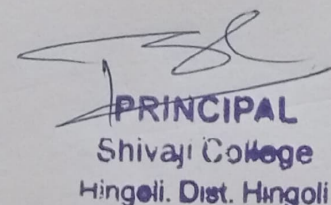 PRINCIPAL
Shivaji College
Hingoli. Dist. Hingoli